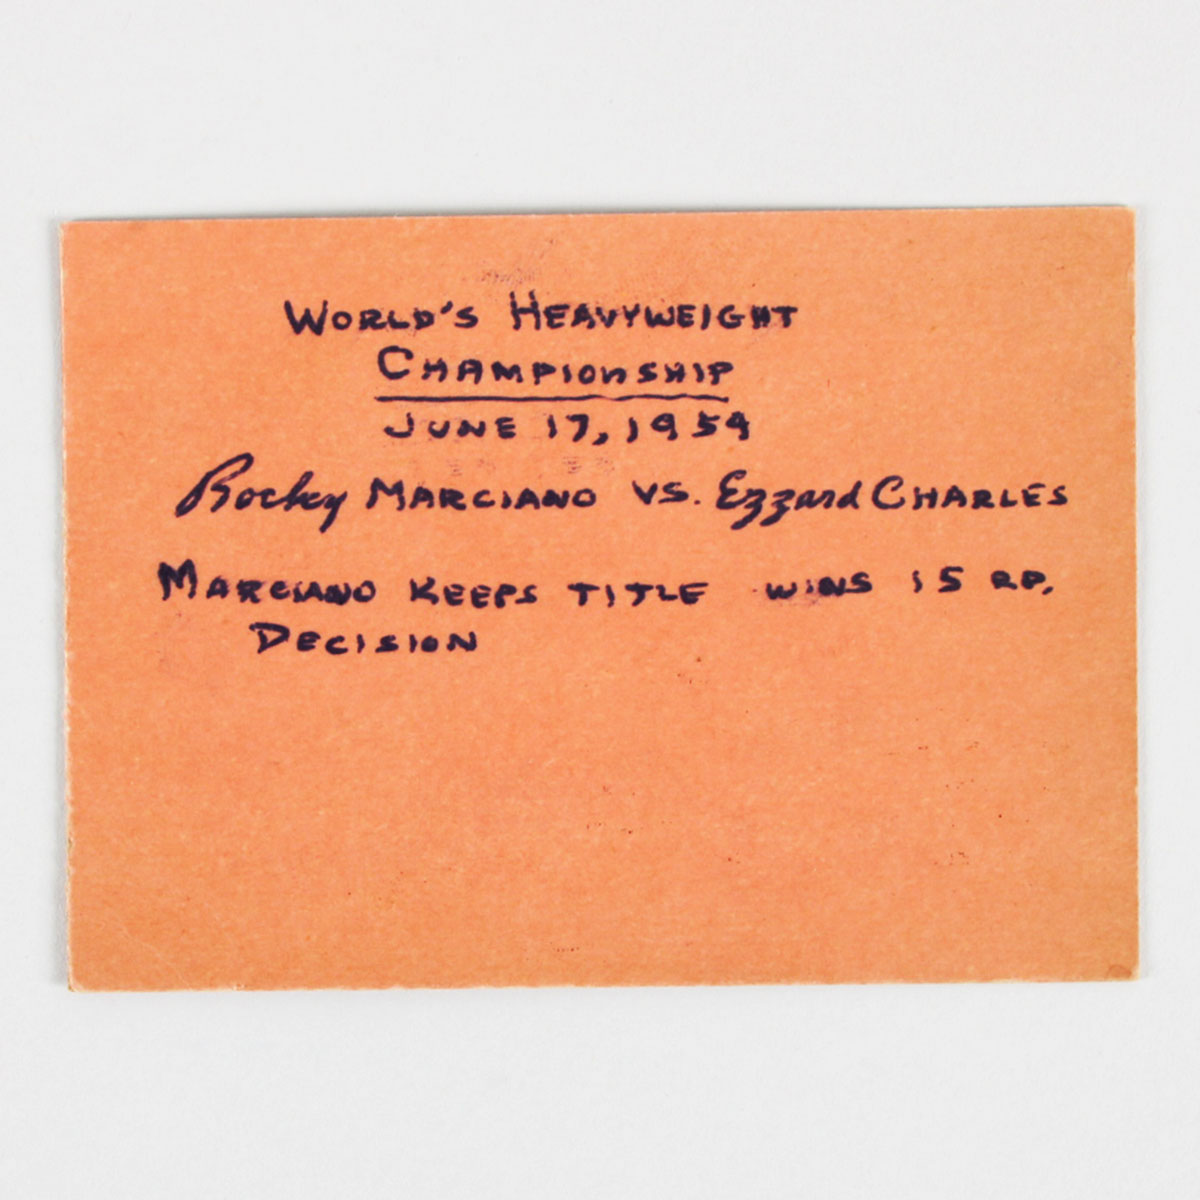 WORLD'S HEAVYWEIGHT
CHAMPIONSHIP
JUNE 17, 1954
Rocky MARCIANO VS. Ezzard CHARLES
MARCIANO KEEPS TITLE WINS 15 RD.
DECISION